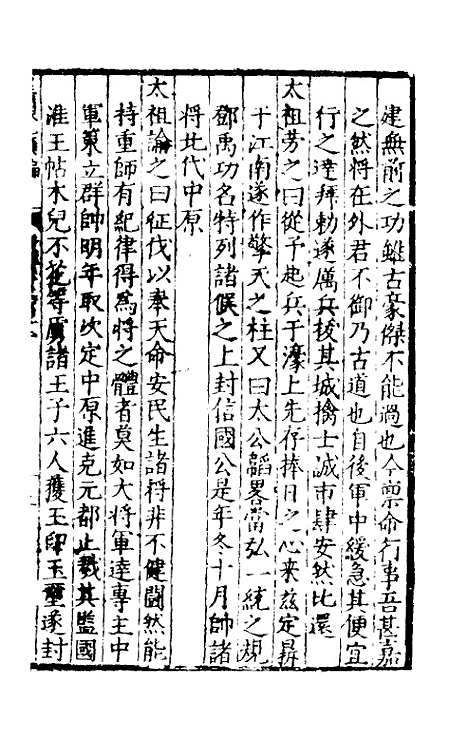 建無前之功雖古豪傑不能過也今稟命行事吾甚嘉
之然将在外君不御乃古道也自後軍中緩急其便宜
行之達拜勅遂厲兵拔其城擒士誠市肆安然比還
太祖勞之曰從予起兵于濠上先存捧日之心来茲定鼎
于江南遂作擎天之柱又曰太公韜畧當弘一統之規
鄧禹功名特列諸侯之上封信國公是年冬十月帥諸
将北伐中原
太祖諭之曰征伐以奉天命安民生諸将非不健鬪然能
持重師有紀律得為将之體者莫如大将軍達專主中
軍策立群帥明年取汴定中原進克元都止戮其監國
淮王帖木兒不花等廣諸王子六人獲玉印玉璽遂封